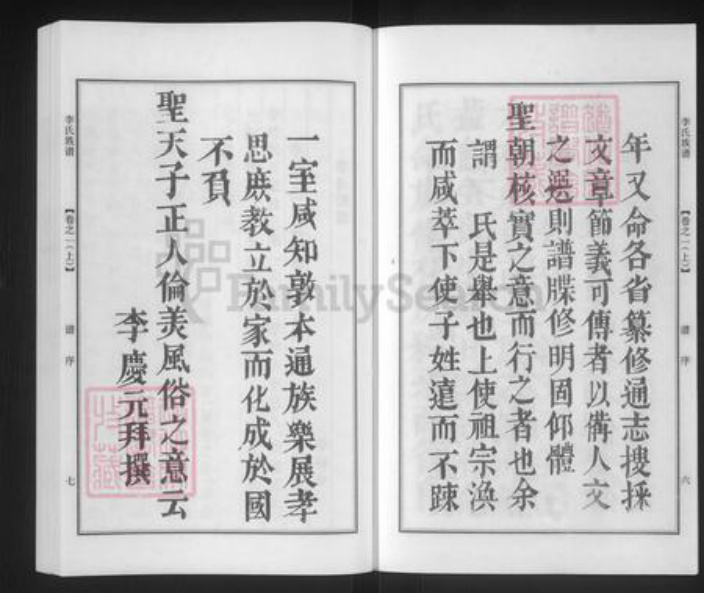 李氏族譜
【卷之一(上)】
譜序
六
年又命各省纂修通志搜採
文章節義可傳者以備人文
之選則譜牒修明固仰體
聖朝核實之意而行之者也余
謂 氏是舉也上使祖宗渙
而咸萃下使子姓遠而不踈
一室咸知敦本通族樂展孝
思庶教立於家而化成於國
不負
聖天子正人倫美風俗之意云
李慶元拜撰
李氏族譜
【卷之一(上)】
譜序
七
FamilySearch